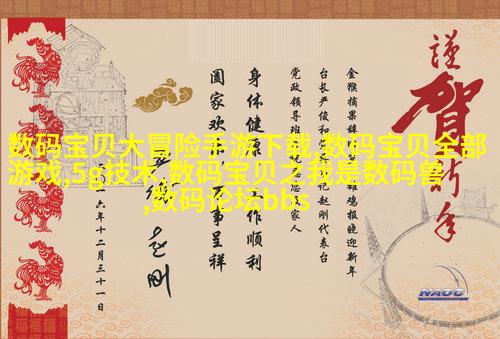 数码宝贝大冒险手游下载,数码宝贝全部
游戏,5g技术,数码宝贝之我是数码兽
,数码论坛bbs
謹
賀新年
金猴摘果辞 雄鸡报晓迎新年
台长严俊和 记赵刚代表台
党政领导班 家人
身体健康 工作顺利
阖家欢 万事呈祥
赵刚
六年十二月三十一日
NAOC